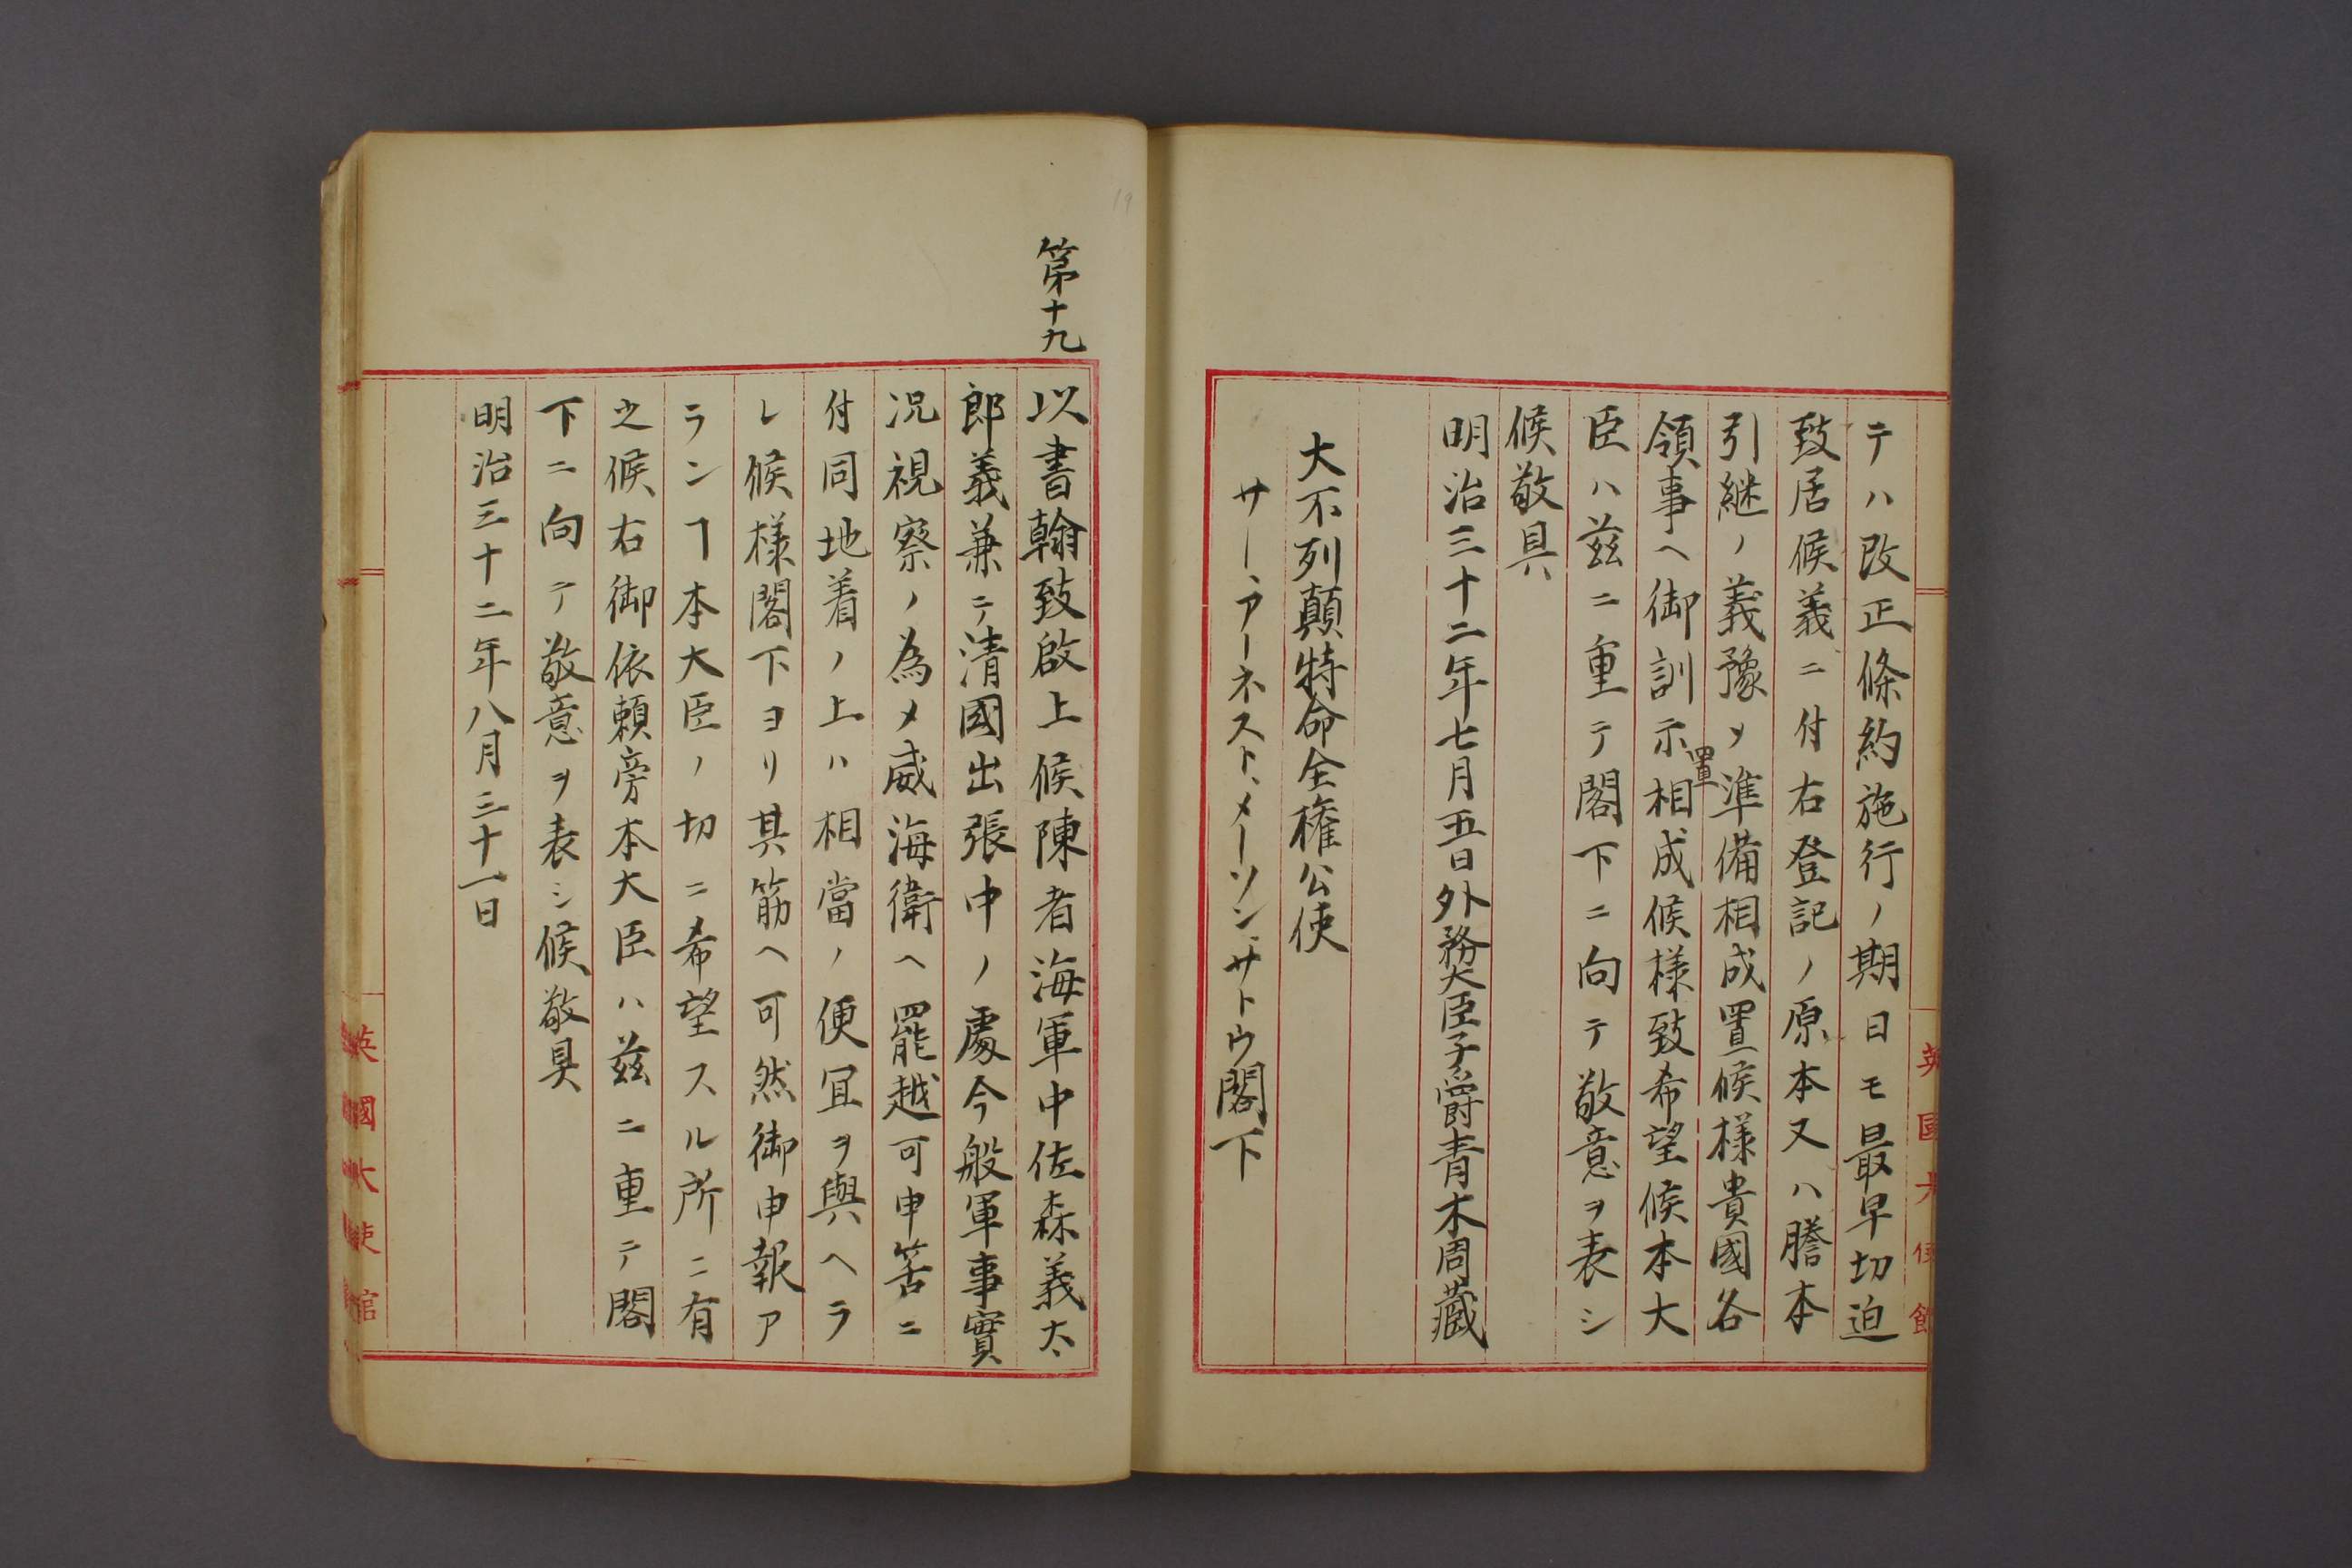 テハ改正條約施行ノ期日モ最早切迫
致居候義ニ付右登記ノ原本又ハ謄本
引継ノ義豫メ準備相成置候様貴國各
領事ヘ御訓示相成候様致希望候本大
置
臣ハ茲ニ重テ閣下ニ向テ敬意ヲ表シ
候敬具
明治三十二年七月五日外務大臣子爵青木周蔵
大不列顛特命全権公使
サー、アーネスト、メーソン、サトウ閣下
英國大使館
19
第十九
以書翰致啟上候陳者海軍中佐森義太
郎義兼テ清國出張中ノ處今般軍事實
况視察ノ為メ威海衛ヘ罷越可申筈ニ
付同地着ノ上ハ相當ノ便宜ヲ與ヘラ
レ候様閣下ヨリ其筋ヘ可然御申報ア
ランヿ本大臣ノ切ニ希望スル所ニ有
之候右御依頼旁本大臣ハ茲ニ重テ閣
下ニ向テ敬意ヲ表シ候敬具
明治三十二年八月三十一日
英國大使館